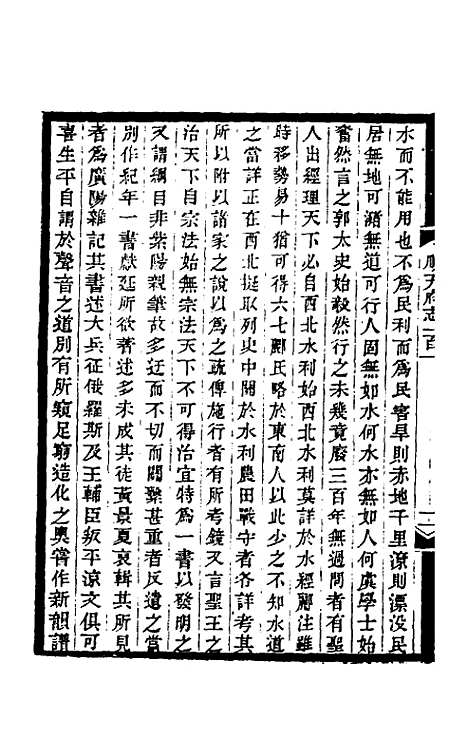 順天府志一百
水而不能用也不爲民利而爲民害旱則赤地千里潦則漂沒民
居無地可瀦無道可行人固無如水何水亦無如人何虞學士始
奮然言之郭太史始毅然行之未幾竟廢三百年無過問者有聖
人出經理天下必自西北水利始西北水利莫詳於水經酈注雖
時移勢易十猶可得六七酈氏略於東南人以此少之不知水道
之當詳正在西北挺取列史中關於水利農田戰守者各詳考其
所以附以諸家之說以爲之疏俾施行者有所考鏡又言聖王之
治天下自宗法始無宗法天下不可得治宜特爲一書以發明之
又謂綱目非紫陽親筆故多迂而不切而關係甚重者反遺之當
別作紀年一書獻廷所欲著述多未成其徒黃景夏裒輯其所見
者爲廣陽雜記其書述大兵征俄羅斯及王輔臣叛平涼文俱可
喜生平自謂於聲音之道別有所窺足窮造化之奧嘗作新韻譜